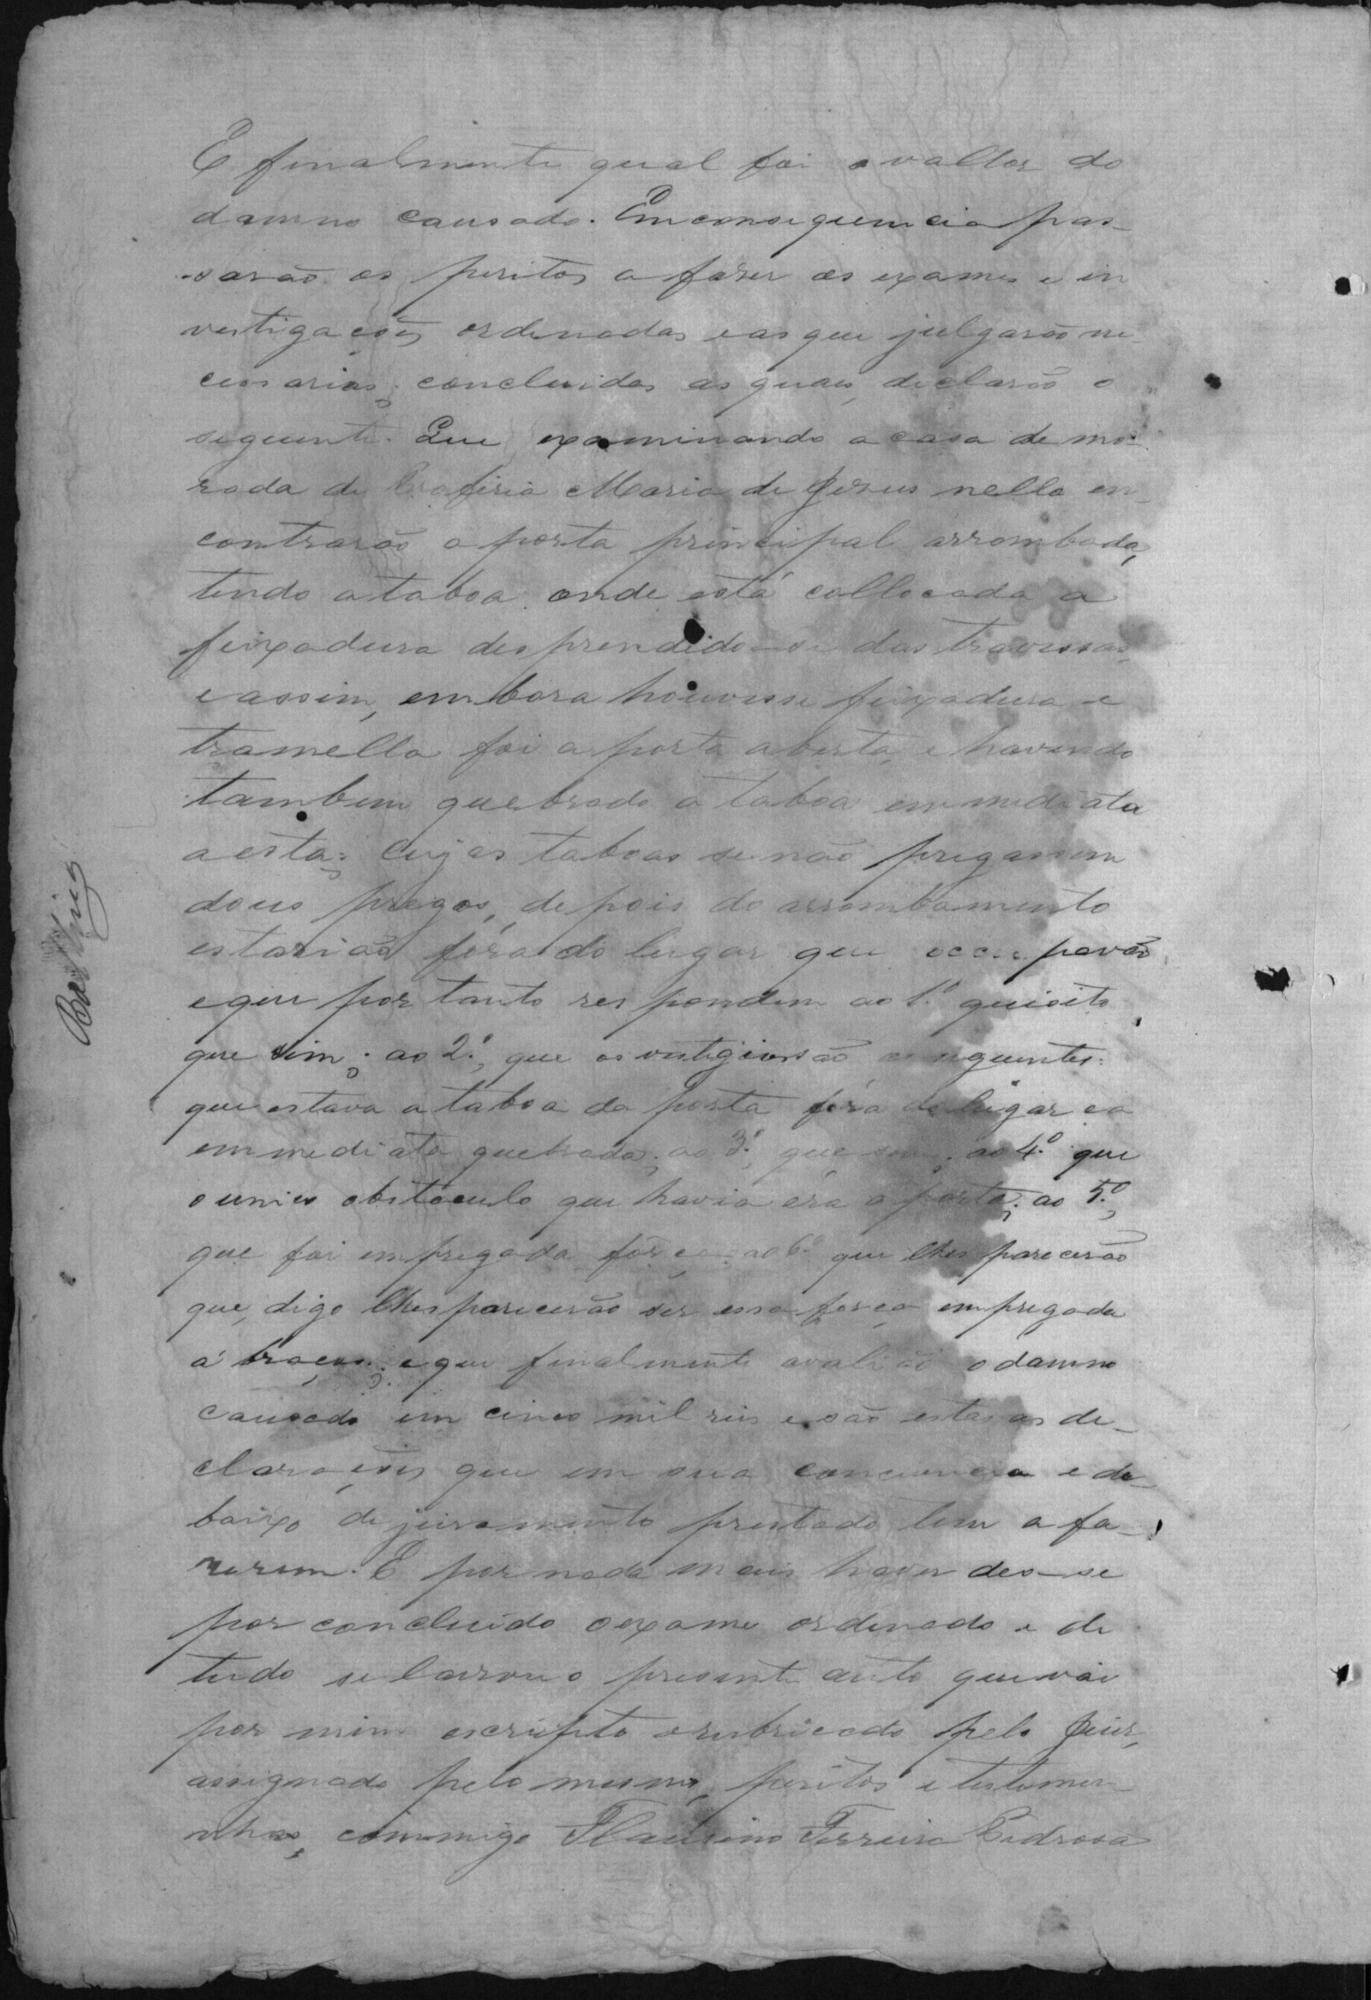 E finalmente qual foi o vallor do
damno causado. Em consequencia pas-
sarão os peritos a fazer os exames e in
vestigações ordenadas e as que julgarão ne-
cessarias; concluidas as quaes, declarão o
seguinte. Que examinando a casa de mo-
rada de Maria de Jesus nella en-
contrarão a porta principal arrombada,
tendo a taboa onde está collocada a
feixadura desprendido-se das travessas,
e assim, embora houvesse feixadura e
tramella foi a porta aberta, e havendo
tambem quebrado a taboa emmediata
a esta; cujas taboas se não pregassem
dous pregos, depois do arrombamento
estarião fóra do lugar que occupavão
e que por tanto respondem ao 1.º quisito
que sim; ao 2.º, que os vestigios são os seguintes:
que estava a taboa da porta fóra do lugar e a
emmediata quebrada; ao 3.º, que sim; ao 4.º que
o unico obstáculo que havia era a porta; ao 5.º,
que foi empregada força; ao 6.º que lhes parecerão
que, digo lhes parecerão ser essa força empregada
a braços; e que finalmente avalião o damno
causado em cinco mil reis e são estas as de-
clarações que em sua conciencia e de-
baixo de juramento prestado tem a fa-
zerem. E por nada mais haver deo-se
por concluido o exame ordenado e de
tudo se lavrou o presente auto que vai
por mim escripto e rubricado pelo Juiz,
assignado pelo mesmo, peritos e testemu-
nhas, commigo Ferreira Pedrosa